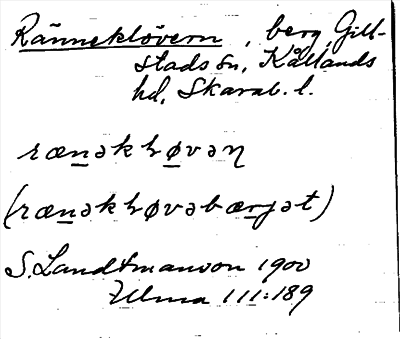 Ränneklövern, berg, Gill-
stads sn, Kållands
hd, Skarab. l.
rænəkløvəɳ
(rænəkløvəbærjət)
S. Landtmanson 1900
Ulma 111:189